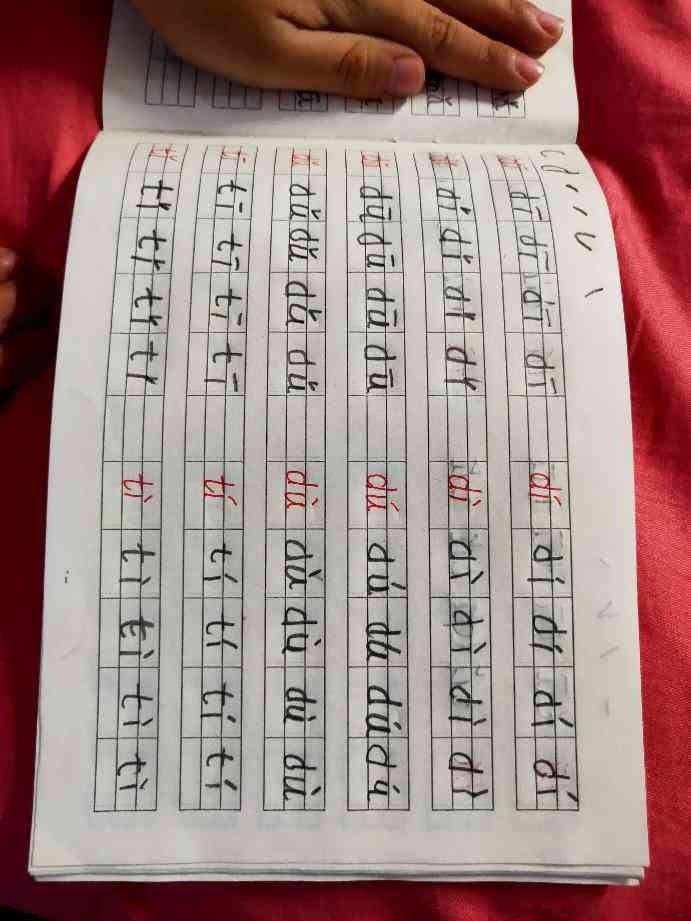 dī dī dī dī dī dí dí dí dí dí
dǐ dǐ dǐ dǐ dǐ dì dì dì dì dì
dū dū dū dū dū dú dú dú dú dú
dǔ dǔ dǔ dǔ dǔ dù dù dù dù dù
tī tī tī tī tī tí tí tí tí tí
tǐ tǐ tǐ tǐ tǐ tì tì tì tì tì